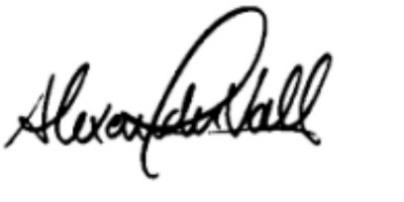 Alexander Hall